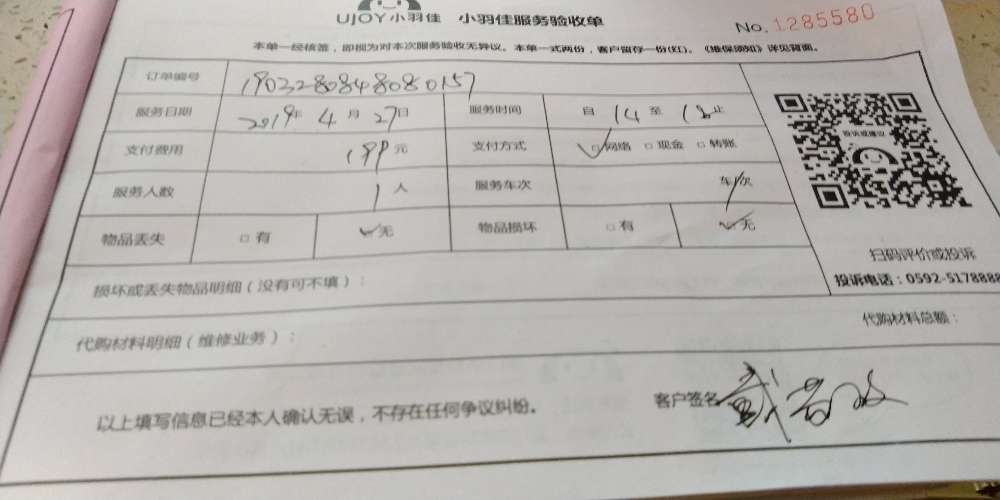 UJOY小羽佳 小羽佳服务验收单
No. 1285580
本单一经核签，即视为对本次服务验收无异议。本单一式两份，客户留存一份(红)。《维保须知》详见背面。
订单编号 190328084808080157
服务日期 2019年 4月 27日 服务时间 自 14 至 18 止
支付费用 199元 支付方式 ✓网络 □现金 □转账
服务人数 1人 服务车次 车/次
物品丢失 □有 ✓无 物品损坏 □有 ✓无
投诉或建议
扫码评价或投诉
投诉电话：0592-5178888
损坏或丢失物品明细（没有可不填）：
代购材料明细（维修业务）： 代购材料总额：
以上填写信息已经本人确认无误，不存在任何争议纠纷。 客户签名